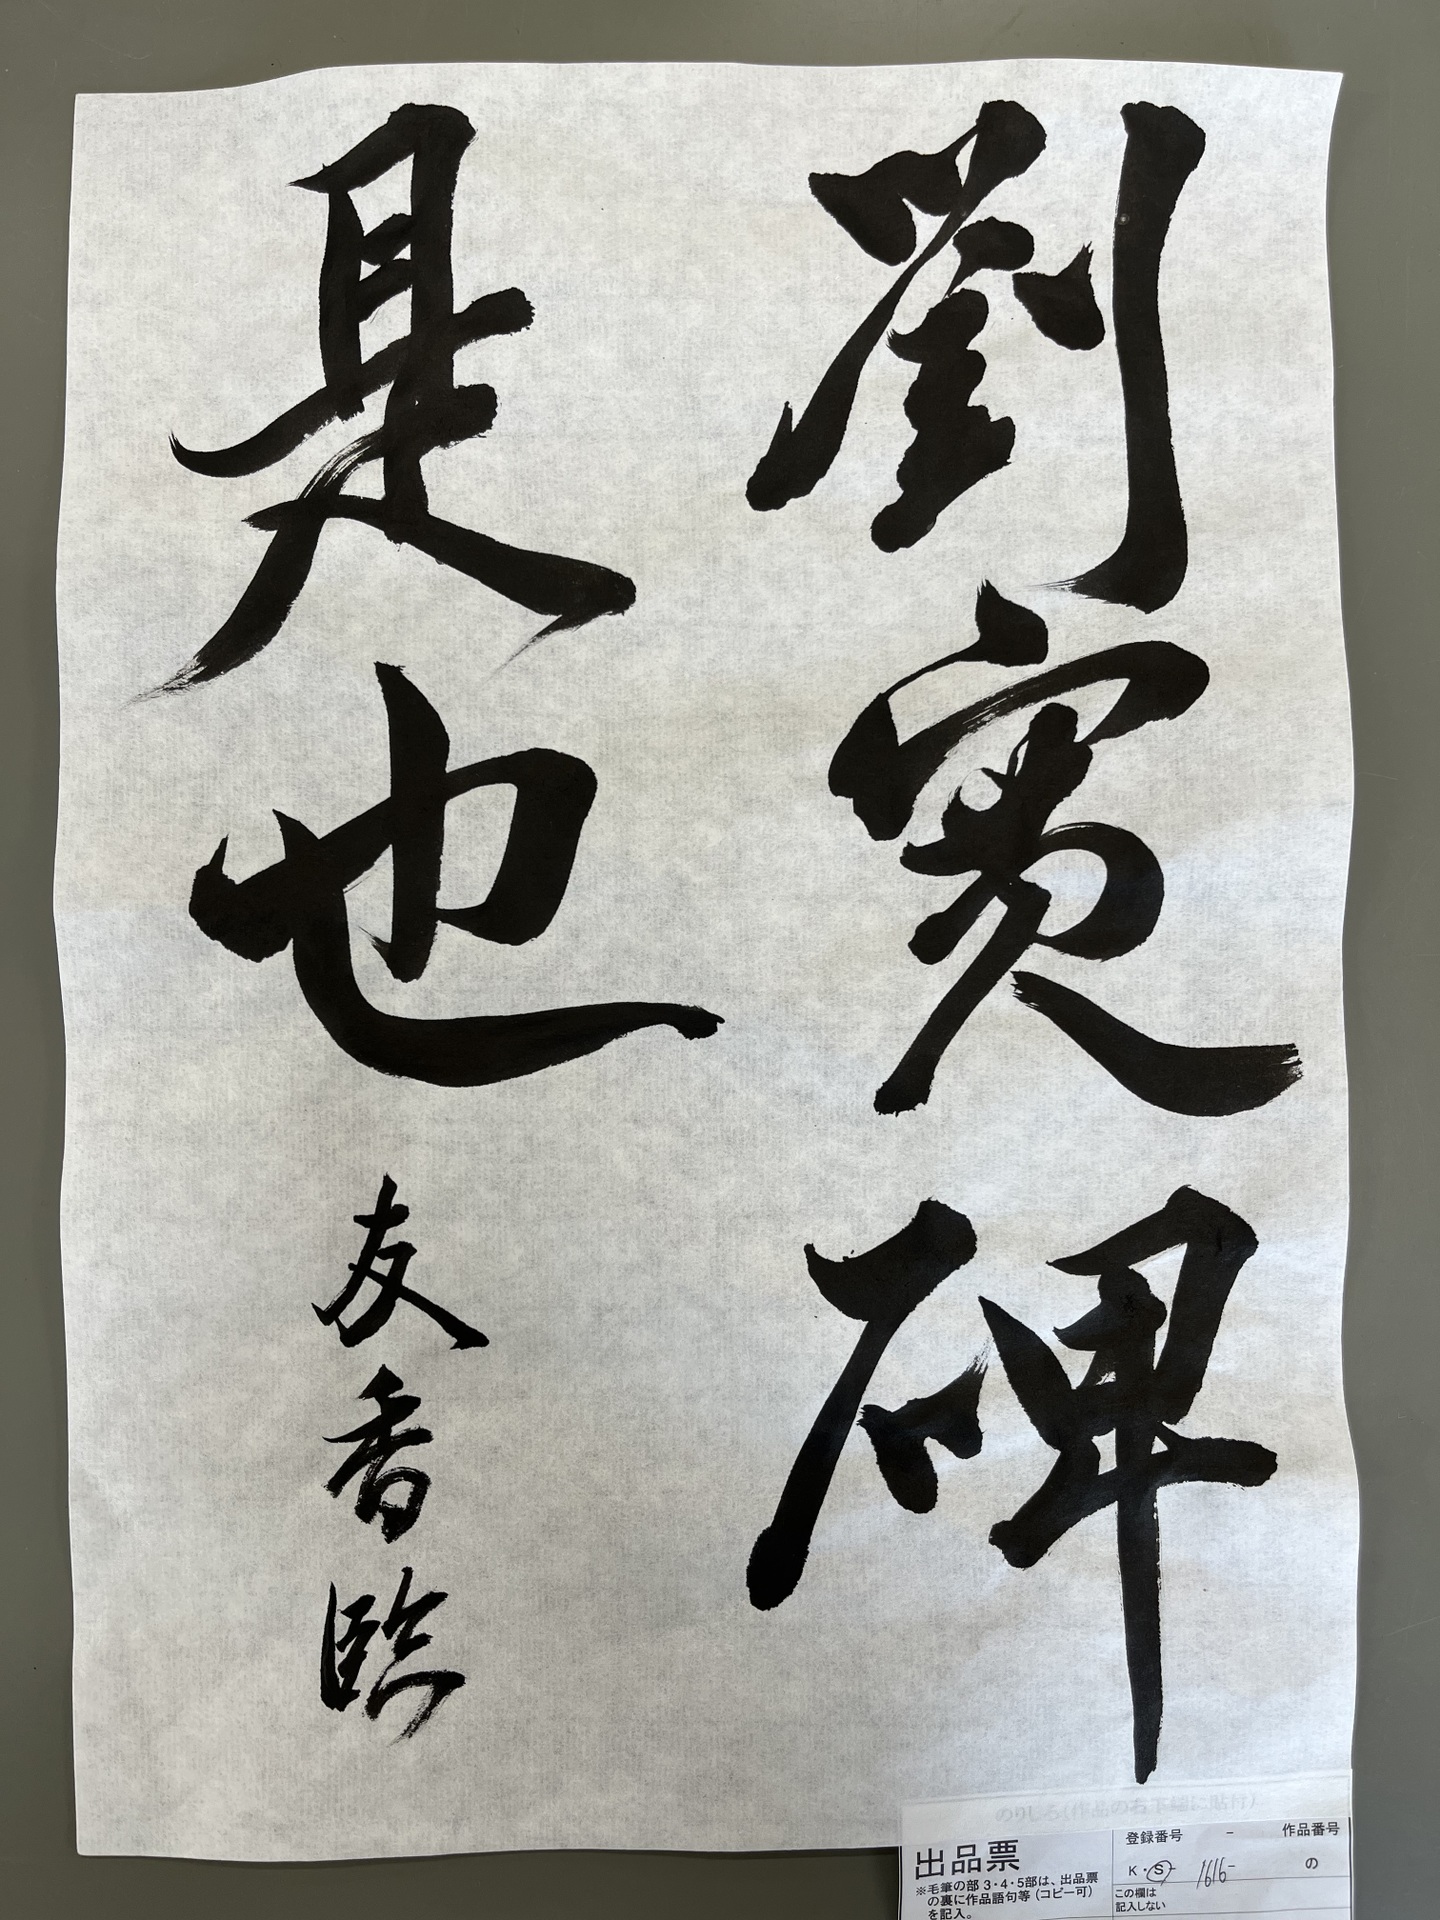 劉寛碑
是也
友香臨
のりしろ(作品の右下端に貼付)
出品票
※毛筆の部 3・4・5部は、出品票
の裏に作品語句等(コピー可)
を記入。
登録番号 - 作品番号
K・S- 1616- の
この欄は
記入しない